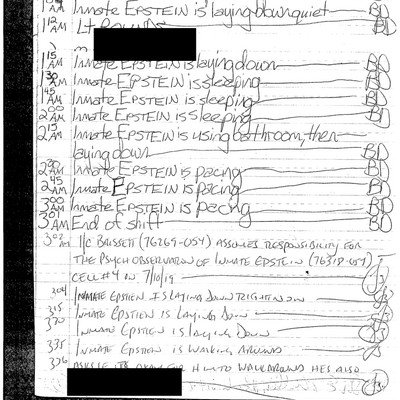 AM Inmate EPSTEIN is laying down quiet BD
1 12 AM Lt ROUNDS BD
1 15 AM Inmate EPSTEIN is laying down BD
1 30 AM Inmate EPSTEIN is sleeping BD
1 45 AM Inmate EPSTEIN is sleeping BD
2 00 AM Inmate EPSTEIN is sleeping BD
2 15 AM Inmate EPSTEIN is using bathroom, then
laying down BD
2 30 AM Inmate EPSTEIN is pacing BD
2 45 AM Inmate EPSTEIN is pacing BD
3 00 AM Inmate EPSTEIN is pacing BD
3 01 AM End of shift BD
302 AM I/C BRISSETT (76269-054) ASSUMES RESPONSIBILITY FOR
THE PSYCH OBSERVATION OF INMATE EPSTEIN (76318-054)
CELL #4 on 7/10/19
304 INMATE EPSTIEN IS LAYING DOWN RIGHT NOW
315 INMATE EPSTIEN IS LAYING DOWN
320 INMATE EPSTIEN IS LAYING DOWN
335 INMATE EPSTIEN IS WALKING AROUND
336 ASKS IF ITS OKAY FOR HIM TO WALK AROUND HES ALSO